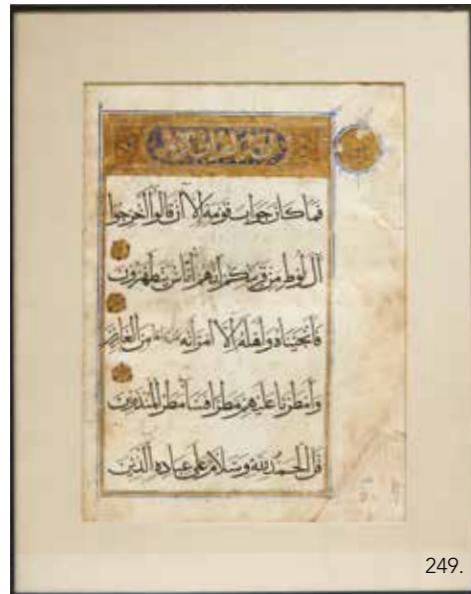 فما كان جواب قومه إلا أن قالوا أخرجوا
آل لوط من قريتكم إنهم أناس يتطهرون
فأنجيناه وأهله إلا امرأته من الغابرين
وأمطرنا عليهم مطرا فساء مطر المنذرين
قل الحمد لله وسلام على عباده الذين
249.